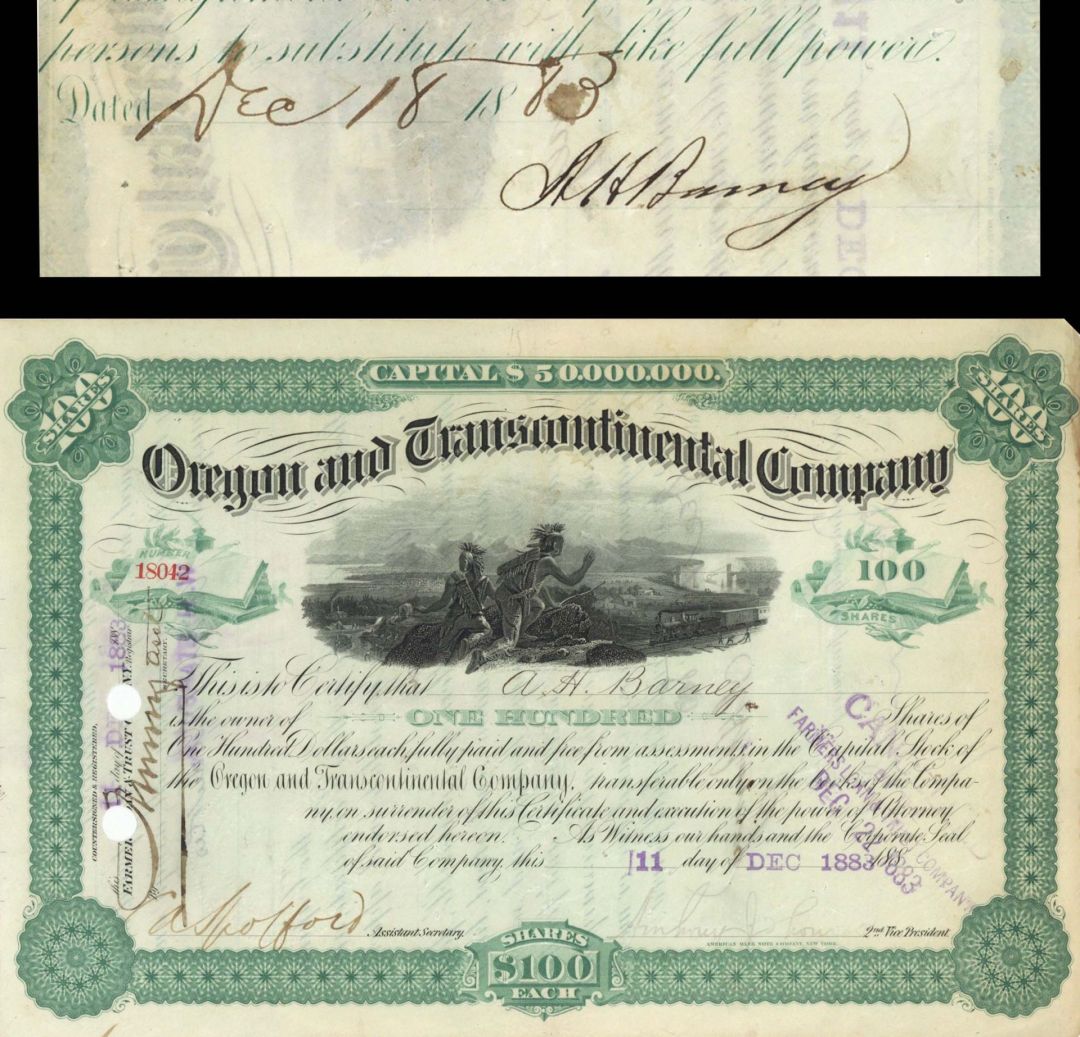 persons to substitute with like full power.
Dated Dec 18 1883
A H Barney
DEC
CAPITAL $50.000.000.
100 SHARES
100 SHARES
Oregon and Transcontinental Company
NUMBER
18042
100
SHARES
This is to Certify, that A. H. Barney
is the owner of ONE HUNDRED Shares of
One Hundred Dollars each, fully paid and free from assessments in the Capital Stock of
the Oregon and Transcontinental Company, transferable only on the books of the Compa-
ny, on surrender of this Certificate and execution of the power of Attorney
endorsed hereon. As Witness our hands and the Corporate Seal
of said Company, this 11 day of DEC 1883 188
COUNTERSIGNED & REGISTERED,
this day of 1883
FARMERS LOAN & TRUST COMPANY
by
SECRETARY
FARMERS COMPANY
DEC 1883
E A Spofford Assistant Secretary. 2nd Vice President
AMERICAN BANK NOTE COMPANY, NEW YORK.
SHARES
$100
EACH